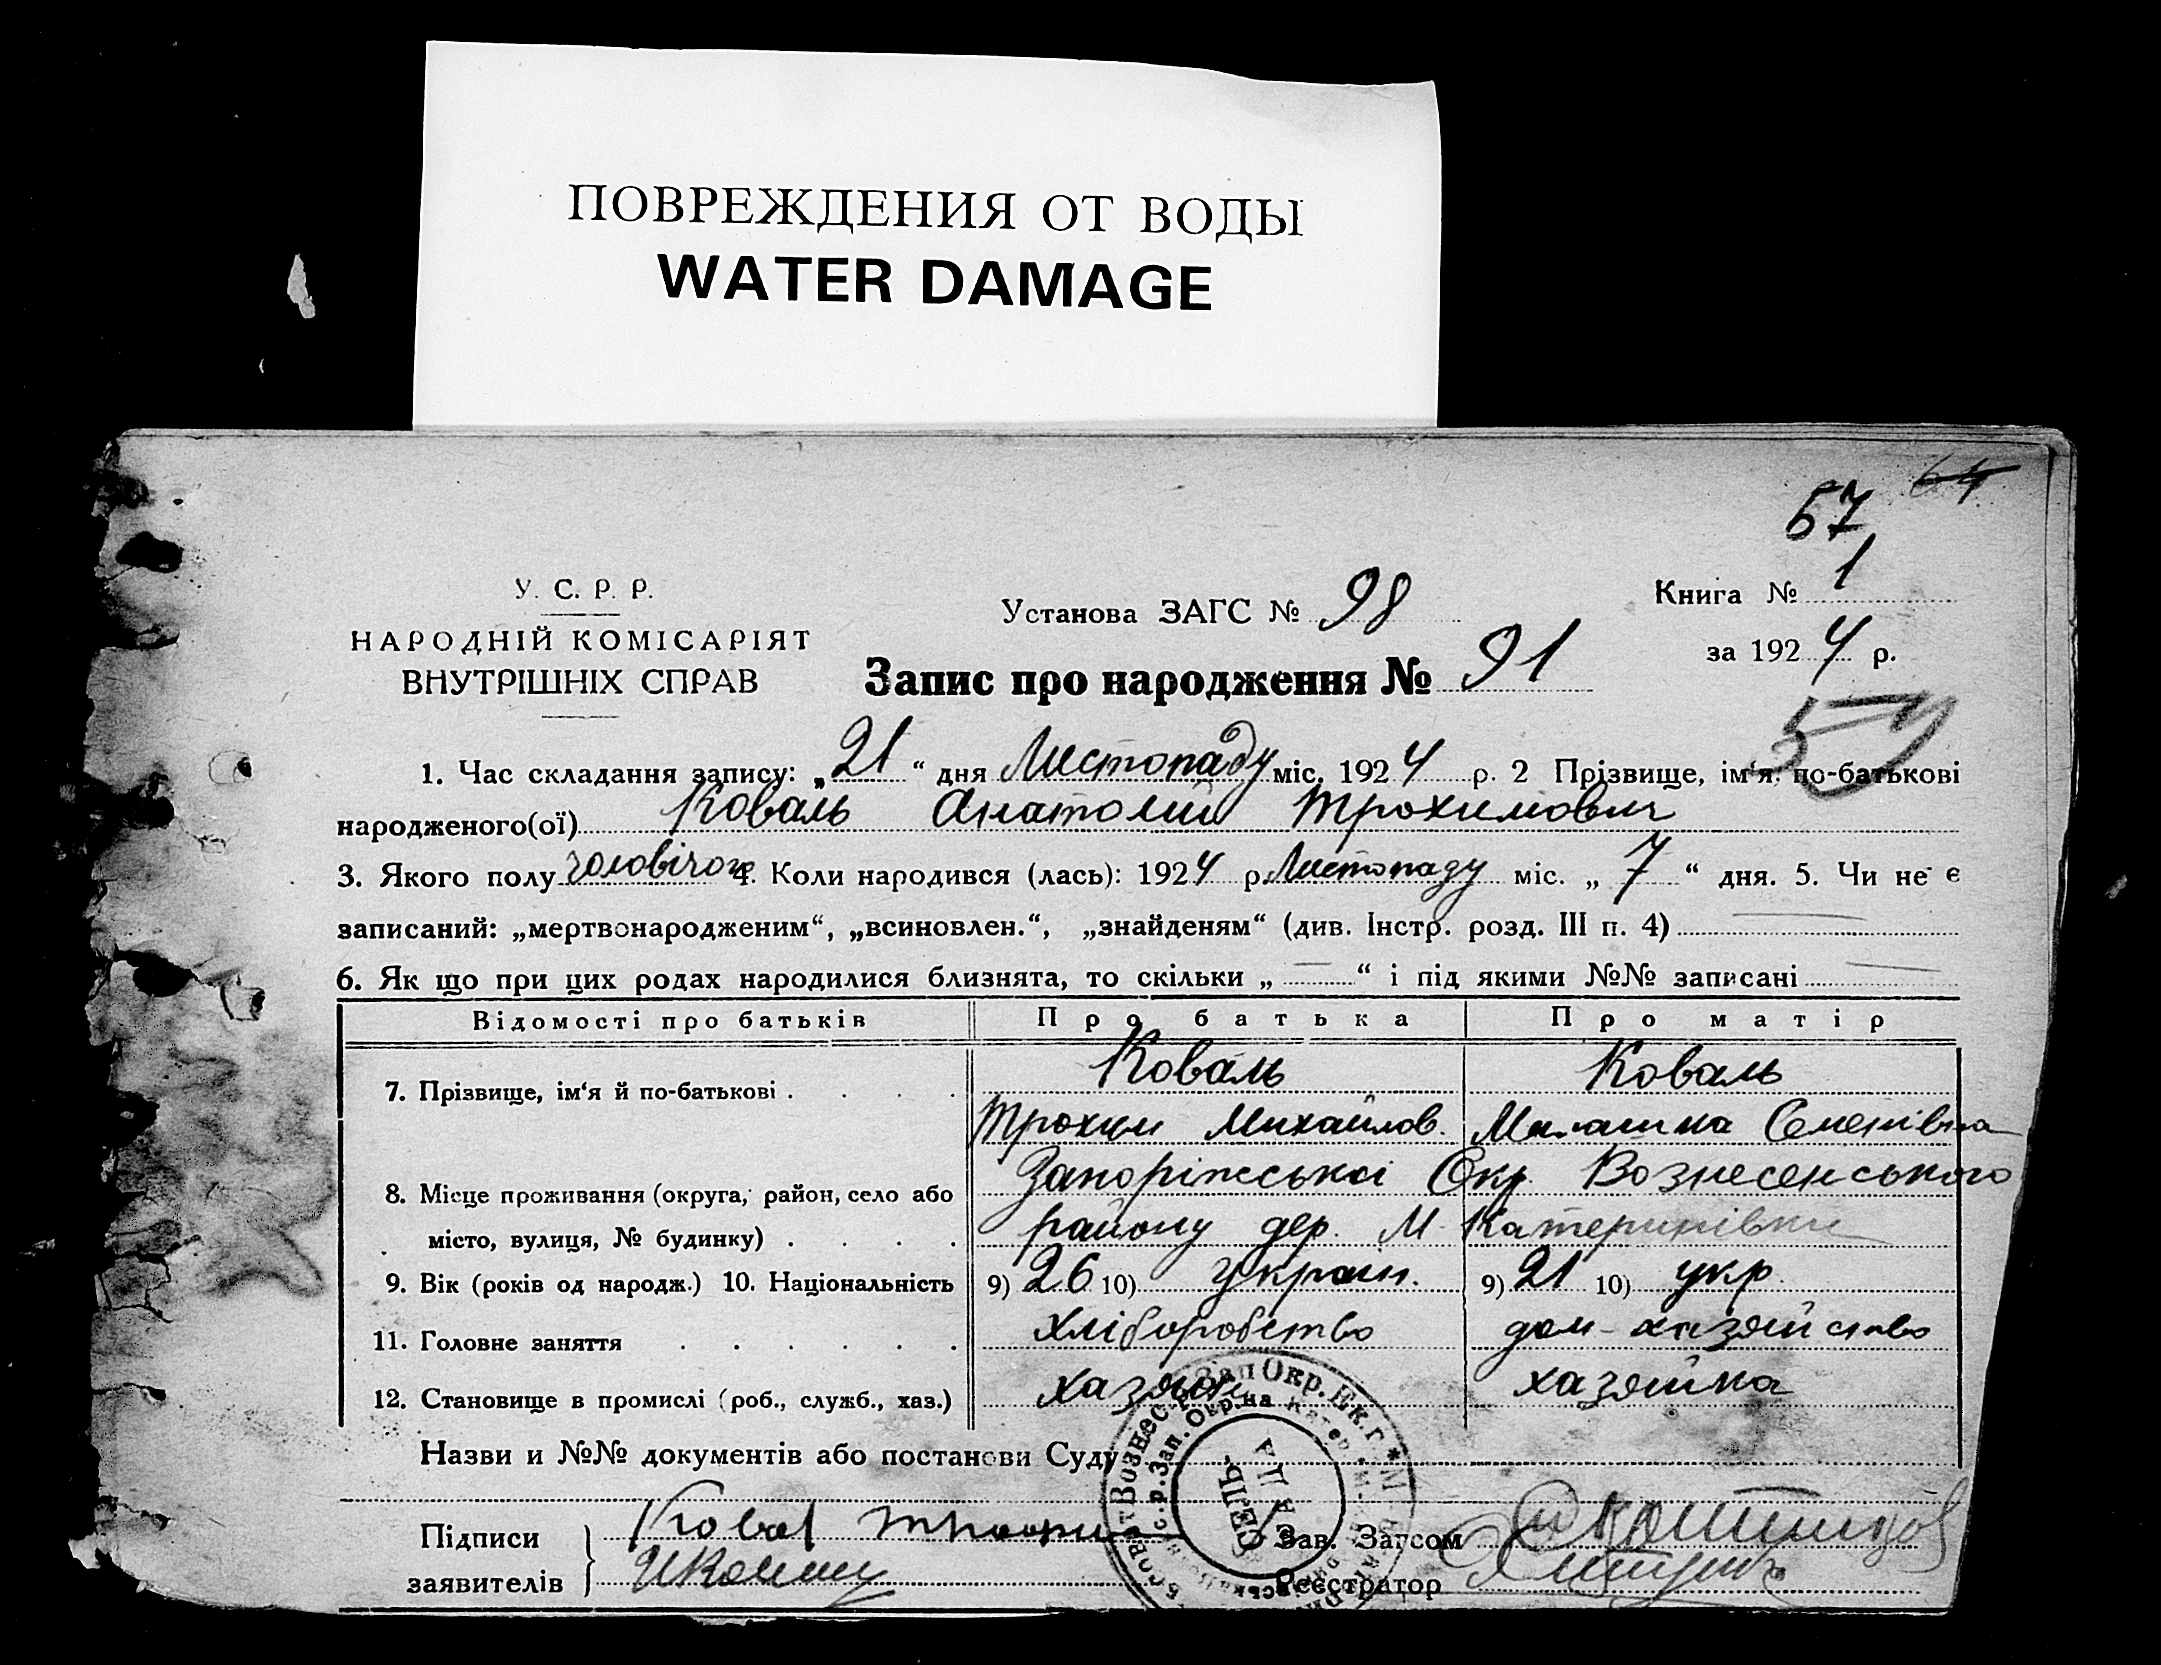 ПОВРЕЖДЕНИЯ ОТ ВОДЫ
WATER DAMAGE
64
57
У. С. Р. Р.
НАРОДНІЙ КОМІСАРІЯТ
ВНУТРІШНІХ СПРАВ
Установа ЗАГС № 98
Книга № 1
за 1924 р.
Запис про народження № 91
57
1. Час складання запису: „21“ дня Листопаду міс. 1924 р. 2 Прізвище, ім'я, по-батькові
народженого(ої) Коваль Анатолий Трохимович
3. Якого полу чоловічого 4. Коли народився (лась): 1924 р. Листопаду міс. „7“ дня. 5. Чи не є
записаний: „мертвонародженим“, „всиновлен.“, „знайденям“ (див. Інстр. розд. III п. 4)
6. Як що при цих родах народилися близнята, то скільки „ “ і під якими №№ записані
Відомості про батьків Про батька Про матір
7. Прізвище, ім'я й по-батькові . . . . Коваль Коваль
Трохим Михайлов. Малашка Семенівна
8. Місце проживання (округа, район, село або Запоріжськоі Окр. Вознесенського
місто, вулиця, № будинку) . . . . району дер. М Катеринівки
9. Вік (років од народж.) 10. Національність 9) 26 10) україн. 9) 21 10) укр
11. Головне заняття . . . . . . хліборобство дом-хазяйство
12. Становище в промислі (роб., служб., хаз.) хазяін хазяйка
Назви и №№ документів або постанови Суду
Підписи Коваль Зав. Загсом
заявителів Реєстратор